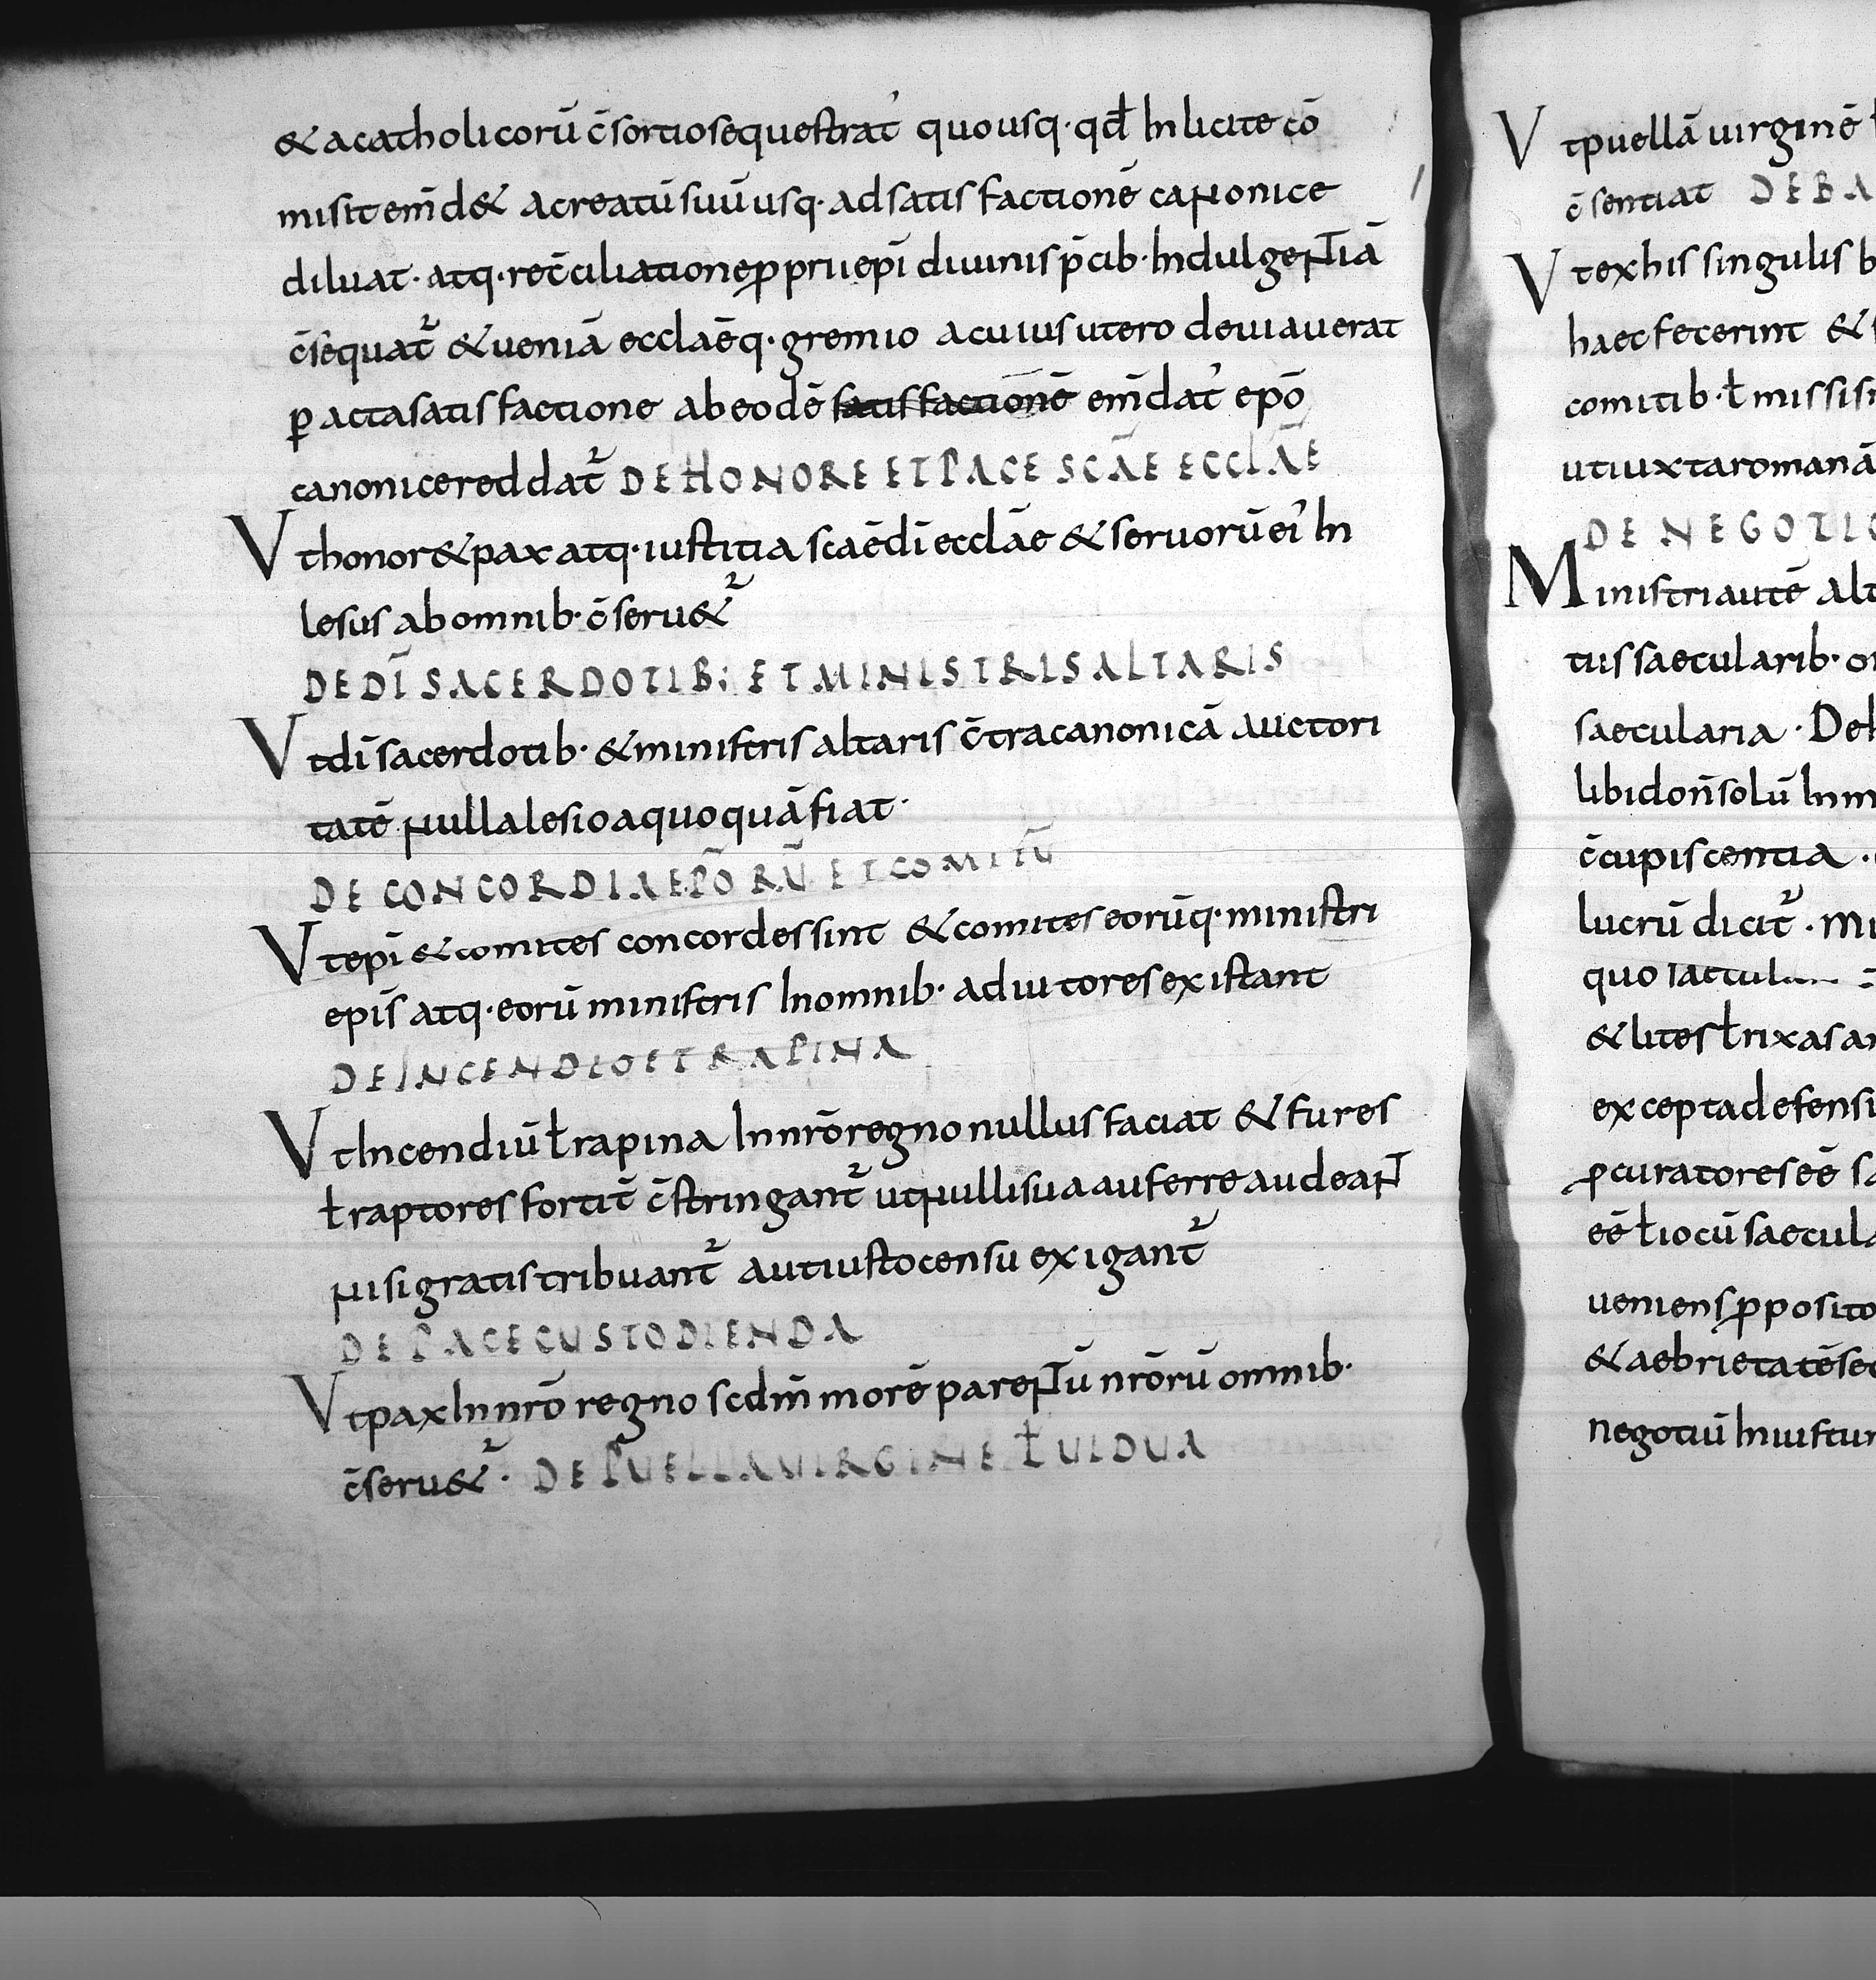 & a catholicorū c̄sortio sequestrat' quousq· qđ Inlicite cō
misit em̄d& a creatū suū usq· ad satisfactionē canonice
diluat· atq· rec̄ciliatione ꝑ pprii epī diuinis p̄cib· IndulgeNTiā
c̄sequat᷑ & ueniā ecclaēq· gremio a cuius utero deuiauerat
ꝑacta satisfactione ab eodē satisfactionē em̄dat' epō
canonice reddat᷑ DE HONORE ET PACE SCĀE ECCLĀE
Vt honor & pax atq· iustitia scaē dī ecclāe & seruorū ei' In
lesus ab omnib· c̄seru&᷑
DE DĪ SACERDOTIB; ET MINISTRIS ALTARIS
Vt dī sacerdotib· & ministris altaris c̄tra canonicā auctori
tatē nulla lesio a quoquā fiat·
DE CONCORDIA EPŌRŪ ET COMITŪ
Vt epī & comites concordes sint & comites eorūq· ministri
epīs atq· eorū ministris Inomnib· adiutores existant
DE INCENDIO ET RAPINA
Vt Incendiū ł rapina In nrō regno nullus faciat & fures
ł raptores fortit̄ c̄stringant᷑ ut nulli sua auferre audeaNT
nisi gratis tribuant᷑ aut iusto censu exigant᷑
DE PACE CUSTODIENDA
Vt pax In nrō regno scdm̄ morē pareNTū nrōrū omnib·
c̄seru&᷑· DE PUELLA VIRGINE ł UIDUA
V tpuellā uirginē
c̄sentiat DE BA
V t ex his singulis b
haec fecerint &
comitib· ł missis
ut iuxta romanā
DE NEGOTIO
Ministri autē alt
tus saecularib· o
saecularia · De
libido n̄ solū In
c̄cupiscentia ·
lucrū dicit᷑ · mi
quo
& lites ł rixas a
excepta defensi
ꝓcuratores eē s
eē ł iocū saecula
ueniens ꝓposito
& aebrietatē se
negotiū Iniustu